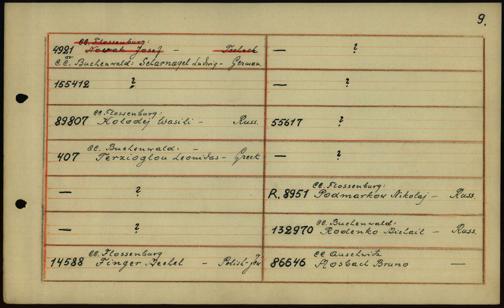 9.
CC. Flossenburg:
4921 Nowak Josef - Tscheck
CC. Buchenwald: Scharnagel Ludwig - German
155412 ?
CC. Flossenburg:
89807 Kolodej Wasili - Russ.
CC. Buchenwald: -
407 Terzioglou Leonidas - Greek
— ?
— ?
CC. Flossenburg
14588 Finger - Polish-Jew
— ?
— ?
55617 ?
— ?
CC. Flossenburg:
R. 8951 Podmarkow Nikolaj - Russ.
CC. Buchenwald:
132970 Rodenko Michail - Russ.
CC Auschwitz
86646 Rosbach Bruno —